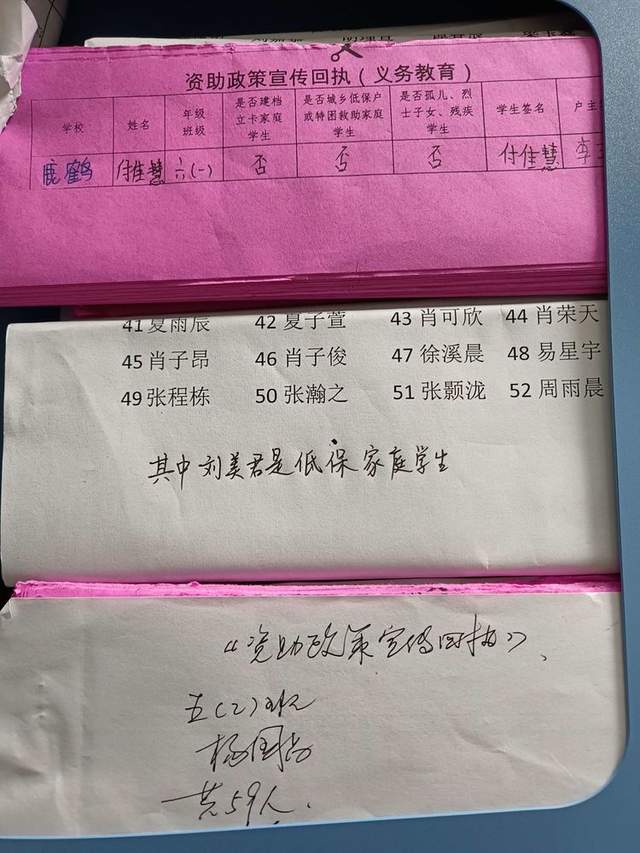 资助政策宣传回执（义务教育）
学校 姓名 年级班级 是否建档立卡家庭学生 是否城乡低保户或特困救助家庭学生 是否孤儿、烈士子女、残疾学生 学生签名 户主
鹿鹤 付佳慧 六(一) 否 否 否 付佳慧 李
41 夏雨辰 42 夏子萱 43 肖可欣 44 肖荣天
45 肖子昂 46 肖子俊 47 徐溪晨 48 易星宇
49 张程栋 50 张瀚之 51 张颢泷 52 周雨晨
其中刘美君是低保家庭学生
《资助政策宣传回执》、
五(2)班
共59人.